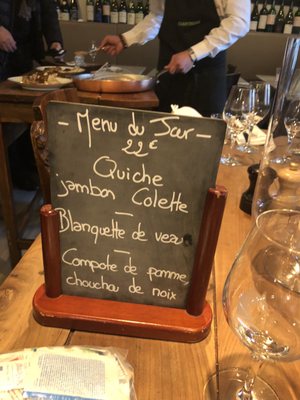 - Menu du Jour -
22€
Quiche
jambon Colette
Blanquette de veau
Compote de pomme
chouchou de noix